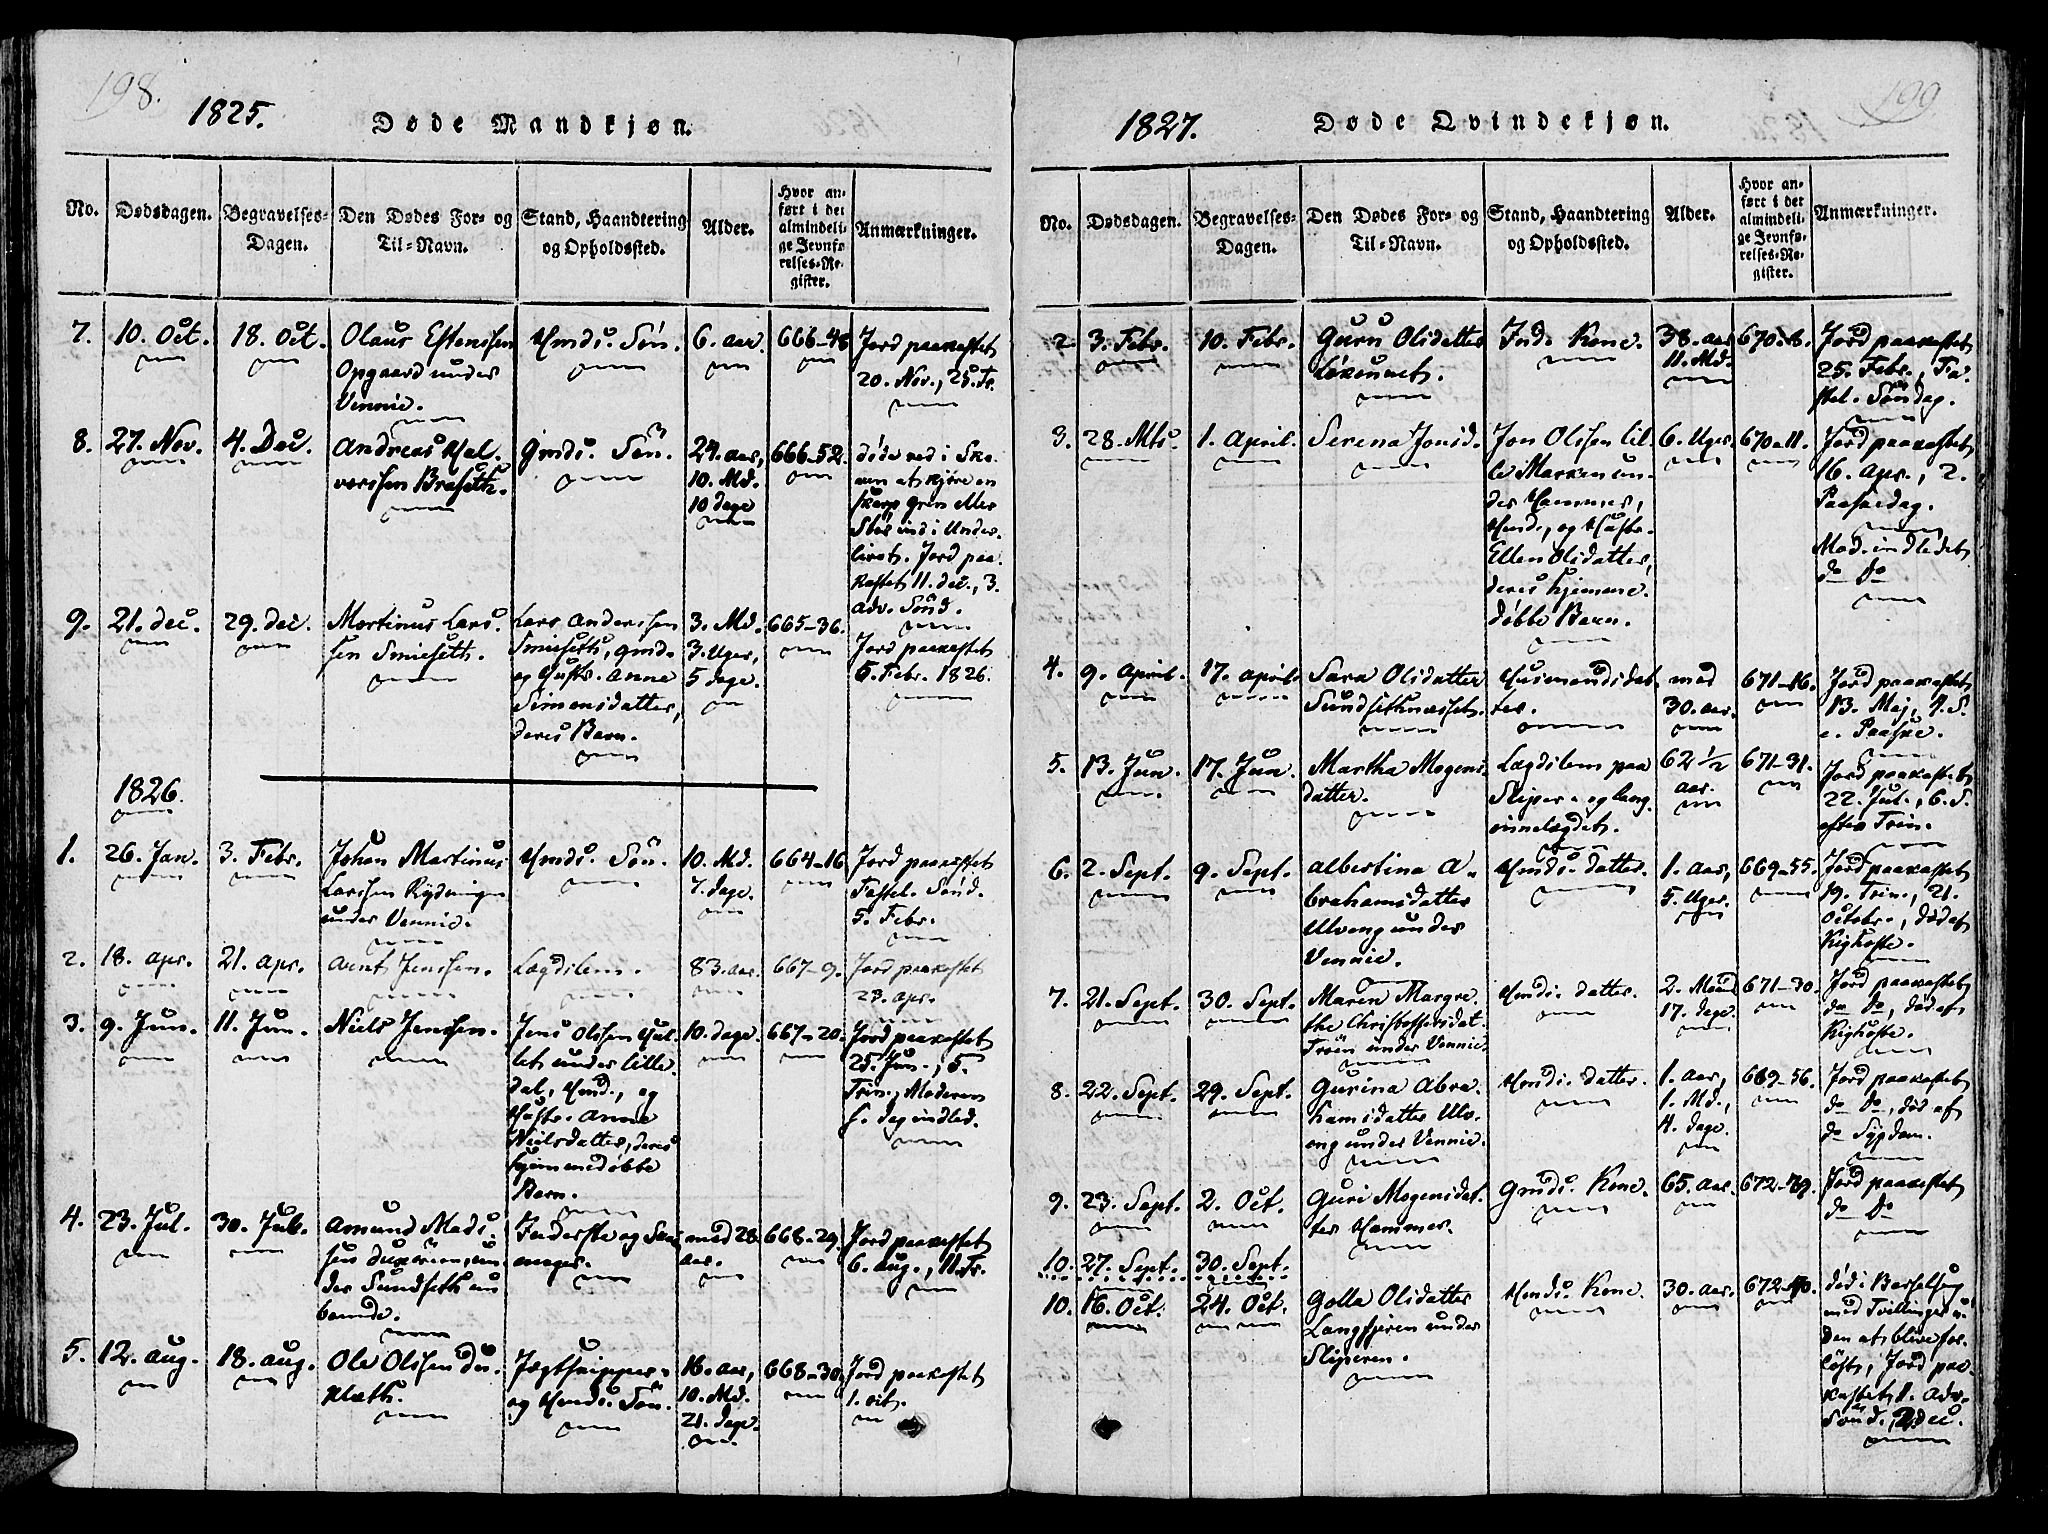 198.
1825.
Døde Mandkjøn.
No.
Dødsdagen.
Begravelses-
Dagen.
Den Dødes For- og
Til-Navn.
Stand, Haandtering
og Opholdssted.
Alder.
Hvor an-
ført i det
almindeli-
ge Jevnfø-
relses-Re-
gister.
Anmærkninger.
7. 10. Oct. 18. Oct.
Olaus Estensen
Opgaard under
Vennie.
Hmds. Søn.
6. aar.
666-48
Jord paakastet
20. Nov., 25. Tr.
8. 27. Nov. 4. Dec.
Andreas Hal-
vorssen Braseth.
Gmds. Søn.
24. aar,
10. Md.
10 dage
666-52.
døde ved i Sko-
ven at kjøre en
skarp gren eller
Stør ind i Under-
livet. Jord paa-
kastet 11. dec., 3.
adv. Sønd.
9. 21. dec. 29. dec.
Martinus Lars-
sen Smiseth.
Lars Anderssen
Smiseth, gmd.
og Hustr. Anne
Simensdatter,
deres Barn.
3. Md.
3. Uger,
5 dage.
665-36.
Jord paakastet
5. Febr. 1826.
1826.
1. 26. Jan. 3. Febr.
Johan Martinus
Larssen Rydninge
under Vennie.
Hmds. Søn.
10. Md.
7. dage.
664-16
Jord paakastet
Fastel. Sønd.
5. Febr.
2. 18. apr. 21. apr.
Arnt Jenssen.
Lægdslem.
83. aar.
667-9.
Jord paakastet
23. apr.
3. 9. Jun. 11. Jun.
Niels Jenssen.
Jens Olssen
under Lille-
dal, Hmd., og
Hustr. Anne
Nielsdatter, deres
hjemmedøbte
Barn.
10. dage.
667-20.
Jord paakastet
25. Jun., 5.
Trin., Moderen
s. dag indled.
4. 23. Jul. 30. Jul.
Amund Mads-
sen
under Sundseth
Inderste og
med 28.
aar.
668-29.
Jord paakastet
6. aug., 11. Tr.
5. 12. aug. 18. aug.
Ole Olssen Du-
klæth.
Jægtskipper-
og Hmds. Søn.
16. aar,
10. Md.
21. dage.
668-30.
Jord paakastet
1. oct.
199
1827.
Døde Qvindekjøn.
No.
Dødsdagen.
Begravelses-
Dagen.
Den Dødes For- og
Til-Navn.
Stand, Haandtering
og Opholdssted.
Alder.
Hvor an-
ført i det
almindeli-
ge Jevnfø-
relses-Re-
gister.
Anmærkninger.
2. 3. Febr. 10. Febr.
Guru Olsdatter
Inds. Kone.
38. aar
11. Md.
670-8.
Jord paakastet
25. Febr., Fa-
stel. Søndag.
3. 28. Mts. 1. April.
Serena Jonsd.
Jon Olssen Lil-
le Marken un-
der Hammer,
Hmd., og Hustr.
Ellen Olsdatter,
deres hjemme-
døbte Barn.
6. Uger.
670-11.
Jord paakastet
16. apr., 2.
Paaskedag.
Mod. indledet
do do
4. 9. April. 17. april.
Sara Olsdatter
Sundsethnæsset.
Husmandsdat-
ter.
med
30. aar.
671-16.
Jord paakastet
13. Maj, 4. S.
e. Paaske.
5. 13. Jun. 17. Jun.
Martha Mogens-
datter.
Lægdslem paa
Sliper- og Lang-
vinnelægdet.
62 1/2
aar.
671-31.
Jord paakastet
22. Jul., 6. S.
efter Trin.
6. 2. Sept. 9. Sept.
Albertina A-
brahamsdatter
Ulveng under
Vennie.
Hmds. datter.
1. aar,
5. Uger.
669-55.
Jord paakastet
19. Trin., 21.
Octobr., død af
Kighoste.
7. 21. Sept. 30. Sept.
Maren Margre-
the Christophersdat.
Trøen under Vennie.
Hmds. datter.
2. Maan.
17. dage.
671-30.
Jord paakastet
do do, død af
Kighoste.
8. 22. Sept. 29. Sept.
Gurina Abra-
hamsdatter Ulv-
eng under Vennie.
Hmds. datter.
1. aar,
1. Md.,
4. dage.
669-56.
Jord paakastet
do do, død af
do Sygdom.
9. 23. Sept. 2. Oct.
Guri Mogensdat-
ter Hammer.
Gmds. Kone.
65. aar.
672-49.
Jord paakastet
do do
10. 27. Sept. 30. Sept.
10. 16. Oct. 24. Oct.
Golla Olsdatter
under
Sliperen.
Hmds. Kone.
30. aar.
672-40.
død i Barselseng
med Tvillinger u-
den at blive for-
løst, Jord paa-
kastet 1. Adv.
Sønd., 2. dec.